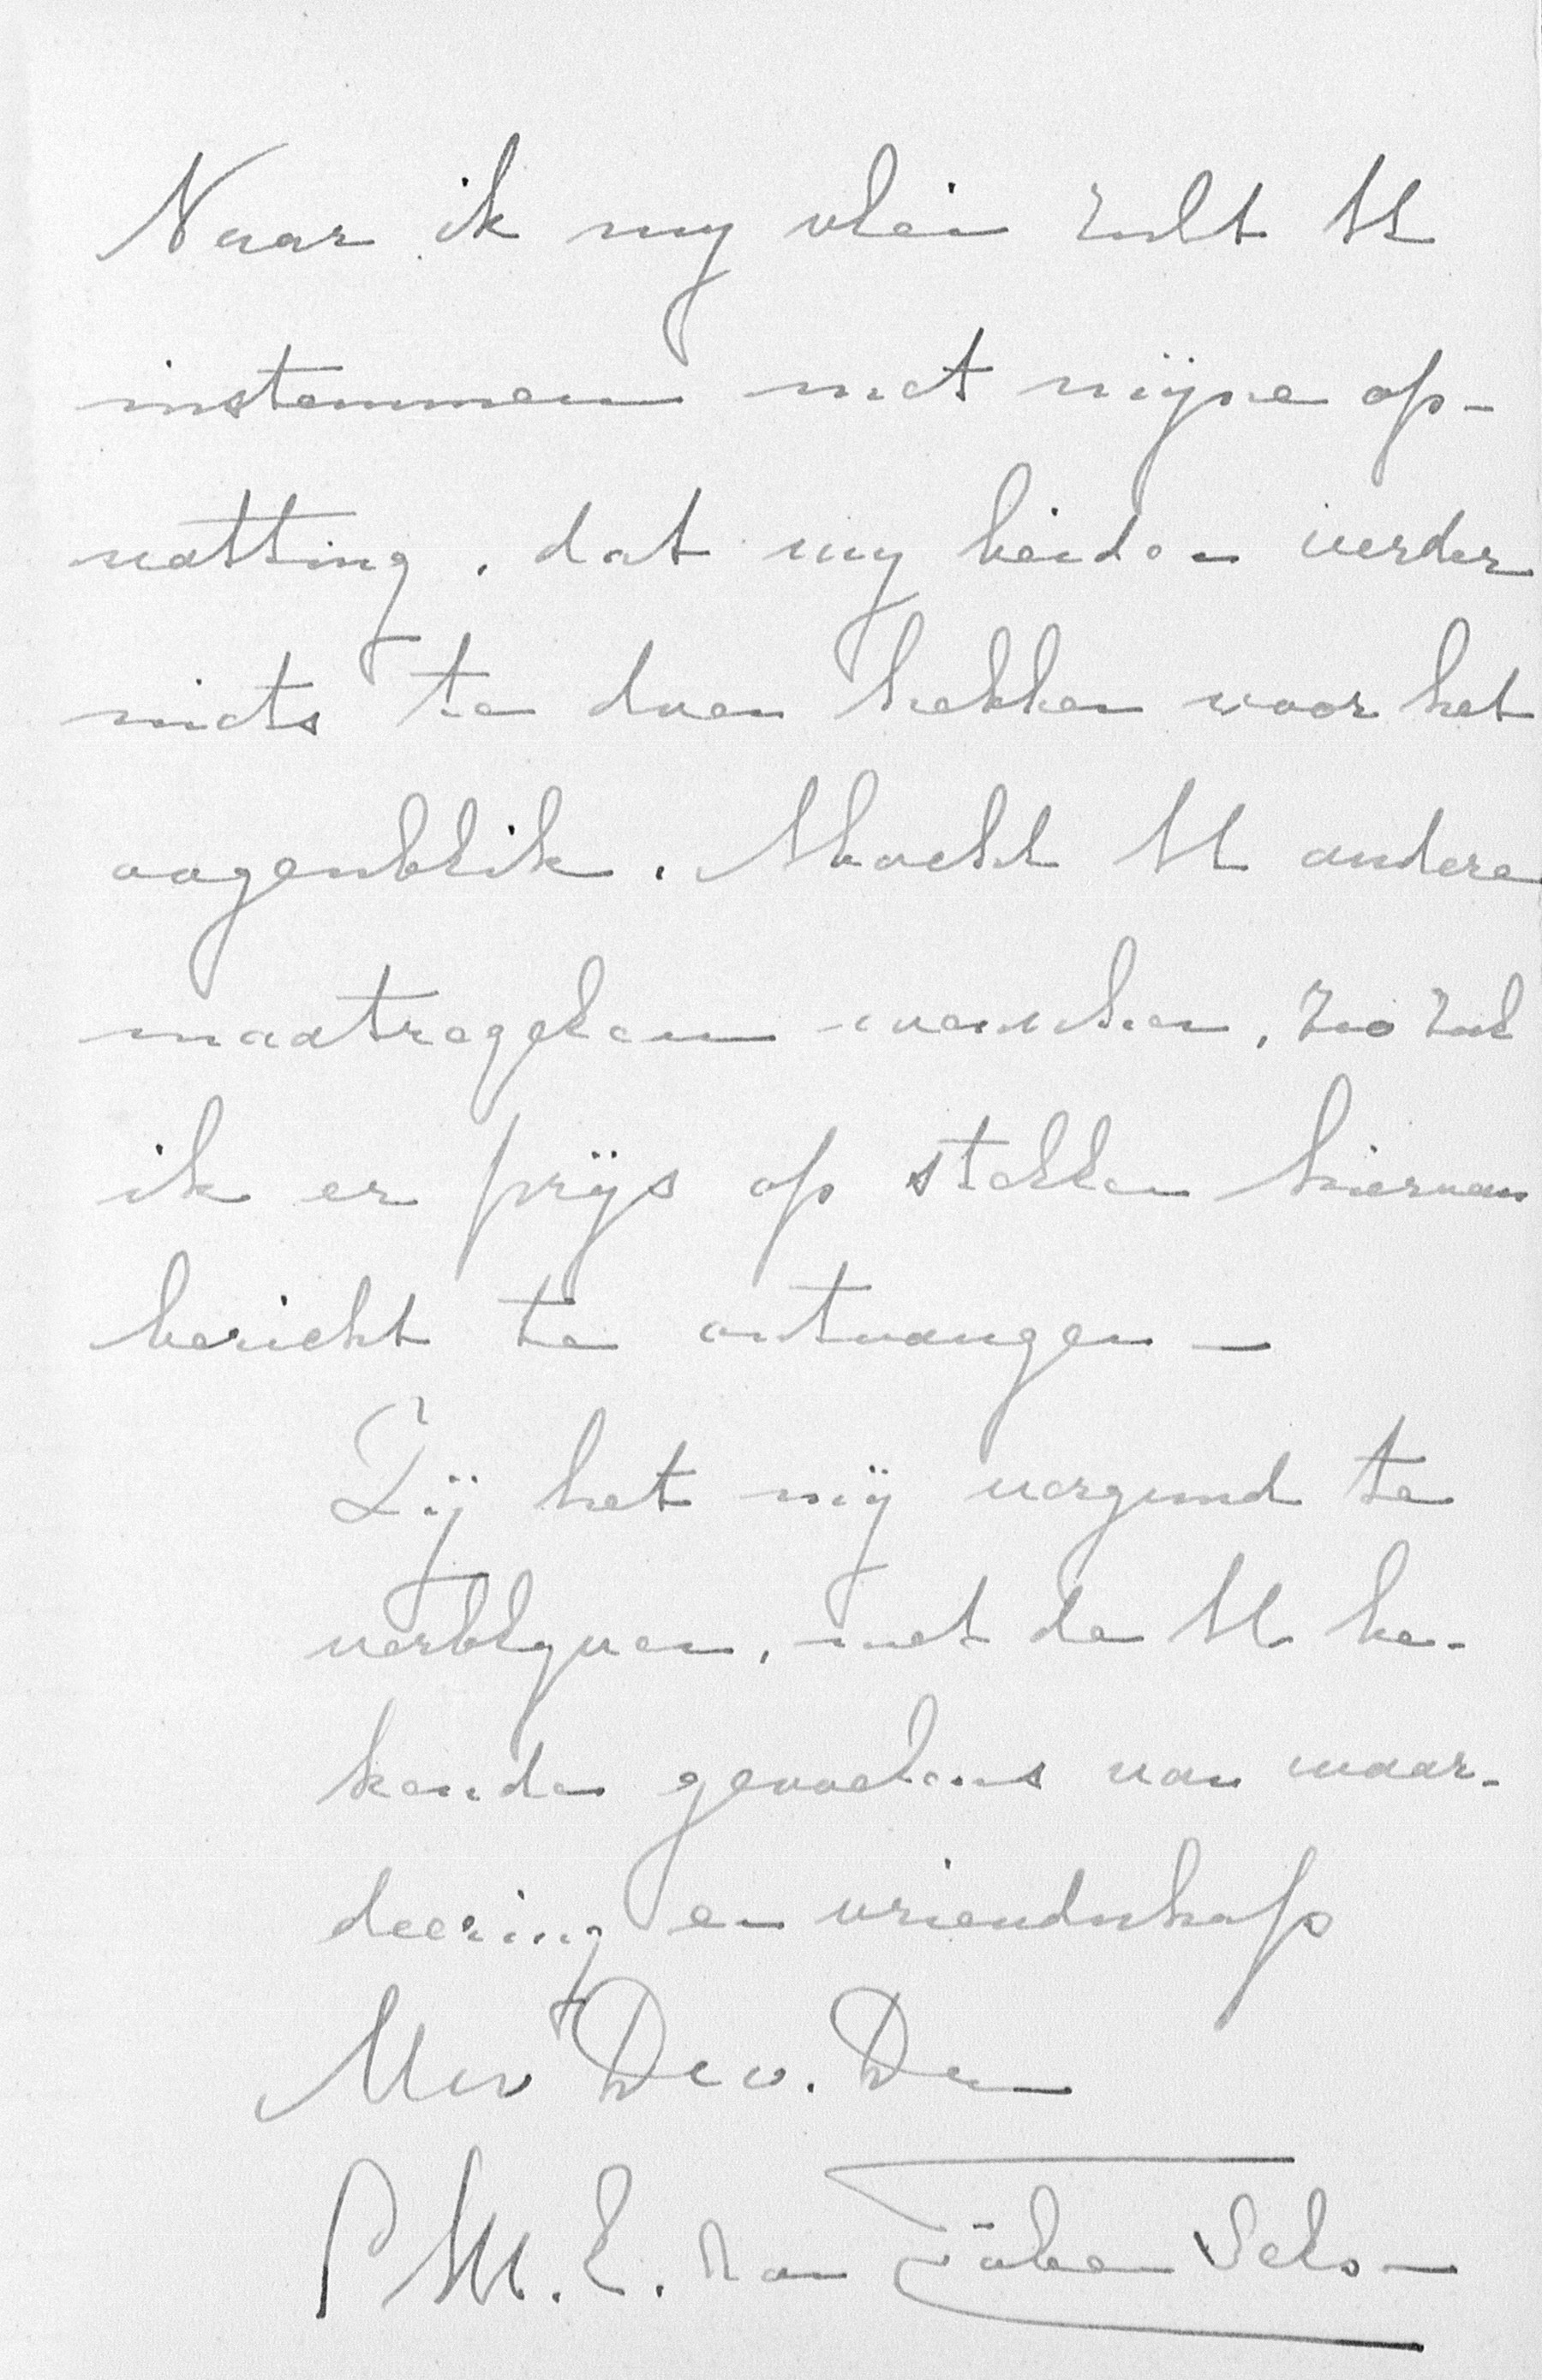 Naar ik my vlei zult U
instemmen met mijne op-
vatting, dat wy beiden verder
niets te doen hebben voor het
oogenblik. Mocht U andere
maatregelen wenschen, zoo zal
ik er prijs op stellen hiervan
bericht te ontvangen —
Zij het mij vergund te
verblyven, met de U be-
kende gevoelens van waar-
deering en vriendschap
Uw Dw. Dr
P M. E. van